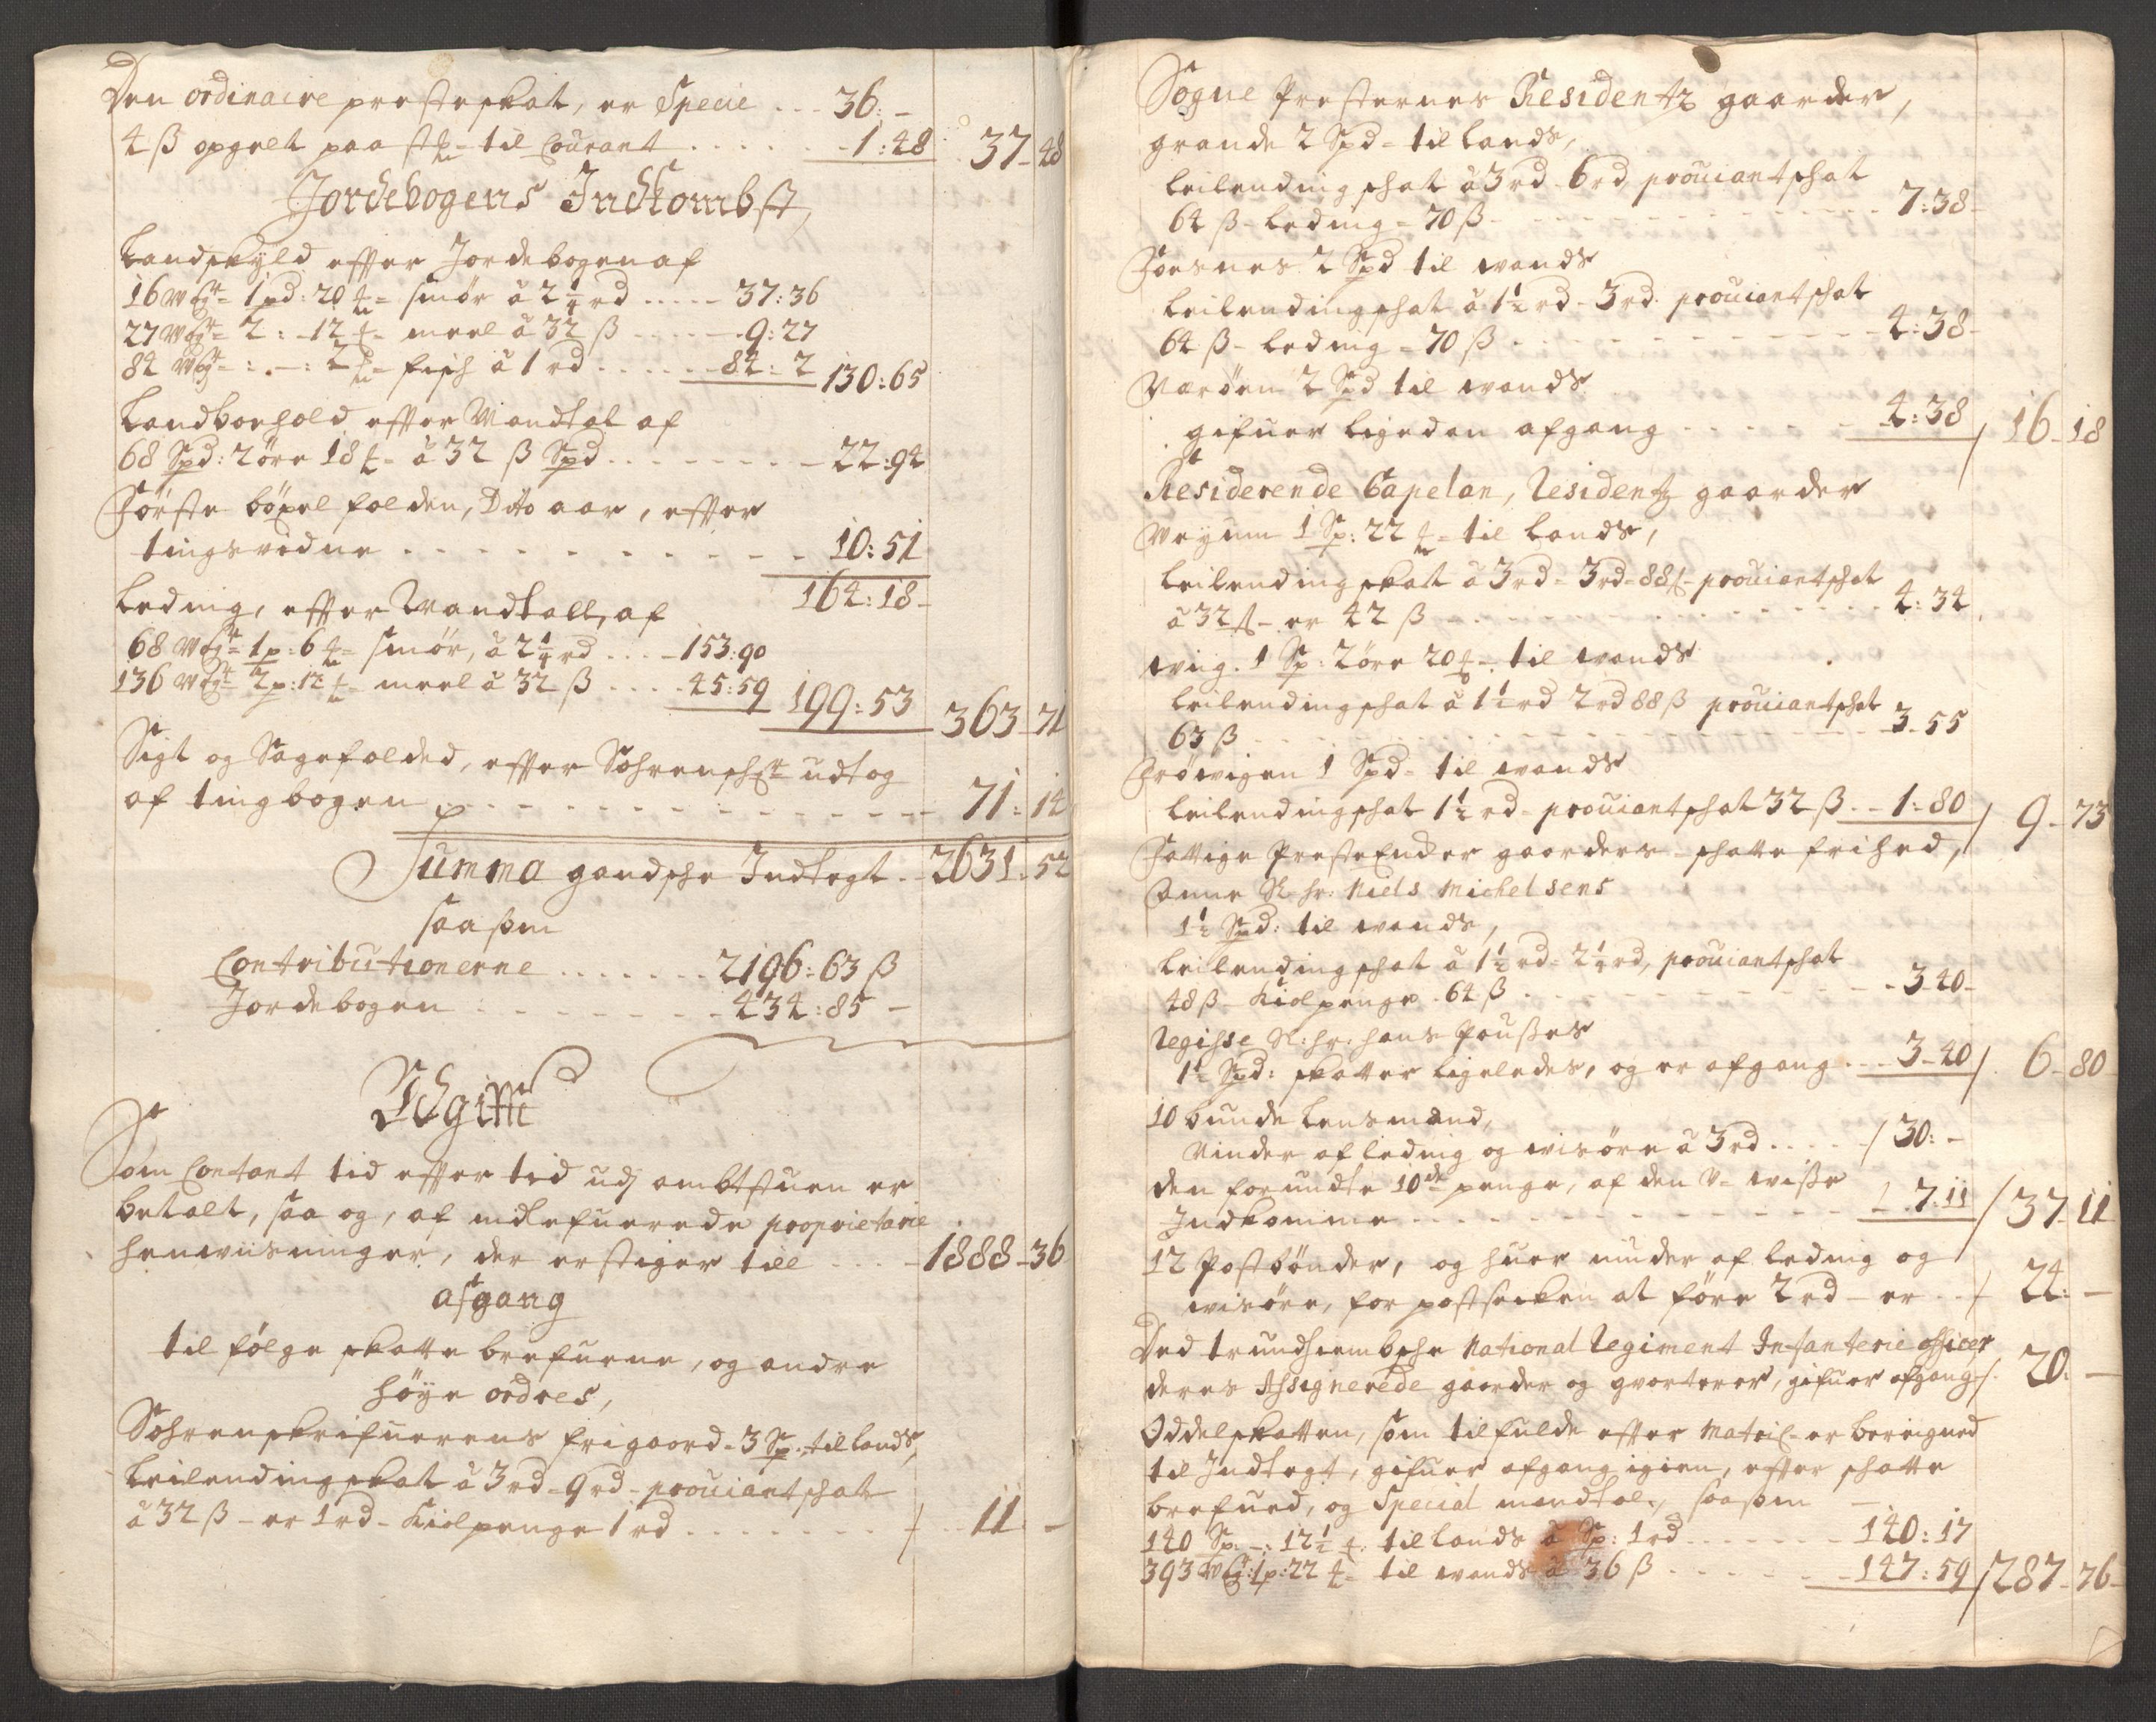 Den ordinaire presteskat, er Specie ... 36: -
4 ß opgelt paa stk - til Courant ...... 1:48 37-48
Jordebogens Indkombst,
Landskyld effter Jordebogen af
16 wog= 1 pd: 20 = smør â 2¼ rd ..... 37:36
27 wog= 2: - 12 = meel â 32 ß .... 9:27
84 wog= : - : 2 = fisch â 1 rd ..... 84:2 130:65
Landboehold effter Mandtal af
68 Spd: 2 øre 18 - â 32 ß Spd ....... 22:94
Første bøxel folden, Dito aar, effter
tingsvidne ........... 10:51
164:18-
Leding, effter Mandtall, af
68 wog= 1 p: 6 = smør, â 2¼ rd ... 153:90
136 wog= 2 p: 12 = meel â 32 ß .... 45:59 199:53 363-71
Sigt og Sagefolded, effter Sohrensch: udtog
af tingbogen ............ 71:14
Summa gandsche Indtegt .. 2631:52
saasom
Contributionerne ....... 2196:63 ß
Jordebogen ....... 434:85 -
Udgifft
Som Contant tid effter tid udj ambtstuen er
betalt, saa og, af indlefuerede proprietarie
henwiisninger, der erstiger till .... 1888-36
afgang
til følge skatte brefuene, og andre
høye ordres,
Sohrenskrifuerens frigaard - 3 Sp: til lands,
Leilendingskat â 3 rd - 9 rd - prouiantschat
â 32 ß - er 1 rd - Kiolpenge 1 rd ........ 11 -
Sogne Presternes Residentz gaarder,
grande 2 Spd - til lands,
leilendingschat â 3 rd - 6 rd, prouiantschat
64 ß - leding - 70 ß ........... 7:38-
Foesnes 2 Spd til wands
leilendingschat â 1½ rd - 3 rd. prouiantschat
64 ß - leding - 70 ß .......... 4:38-
Werøen 2 Spd til wands
gifuer ligedan afgang ...... 4:38 / 16-18
Residerende Capelan, Residentz gaarder
weyum 1 Sp: 22 = til lands,
leilendingskat â 3 rd - 3 rd - 88 ß - prouiantschat
â 32 ß - er 42 ß ........... 4:34
wiig. 1 Sp: 2 øre 20 - til wands
leilendingschat â 1½ rd 2 rd 88 ß prouiantschat
63 ß .............. 3-55
Frøwigen 1 Spd - til wands
leilendingschat 1½ rd - prouiantschat 32 ß .. 1:80 / 9-73
Fattige PresteEncker gaarders schatte frihed,
Sl: hr: Niels Michelsens
1½ Spd: til wands,
leilendingschat â 1½ rd - 2¼ rd, prouiantschat
48 ß - Kiolpenge - 64 ß ........ 3-40-
Sl: hr: hans
1½ Spd: skatter ligeledes, og er afgang ... 3-40 / 6-80
10 bunde Lensmend,
Ninder af leding og wisøre â 3 rd ..... / 30: -
den forundte 10de penge, af den u-wisse
Indkomme ............ 7:11 / 37-11
12 Postbønder, og huer ninder af leding og
wisøre, for postsecken at føre 2 rd - er .. / 24: -
Ded trundhiembsche National Regiment Infanterie officer
deres Assignerede gaarder og qvarterer, gifuer afgang /. 20: -
Oddelskatten, som tilfulde effter Matric- er beregned
til Indtegt, gifuer afgang igien, effter schatte
brefued, og Special mandtal, saasom -
140 Sp: - : 12½ : til lands â Sp: 1 rd ...... 140:17
393 wog: 1 p: 22 - til wands â 36 ß ....... 147:59 / 287-76-